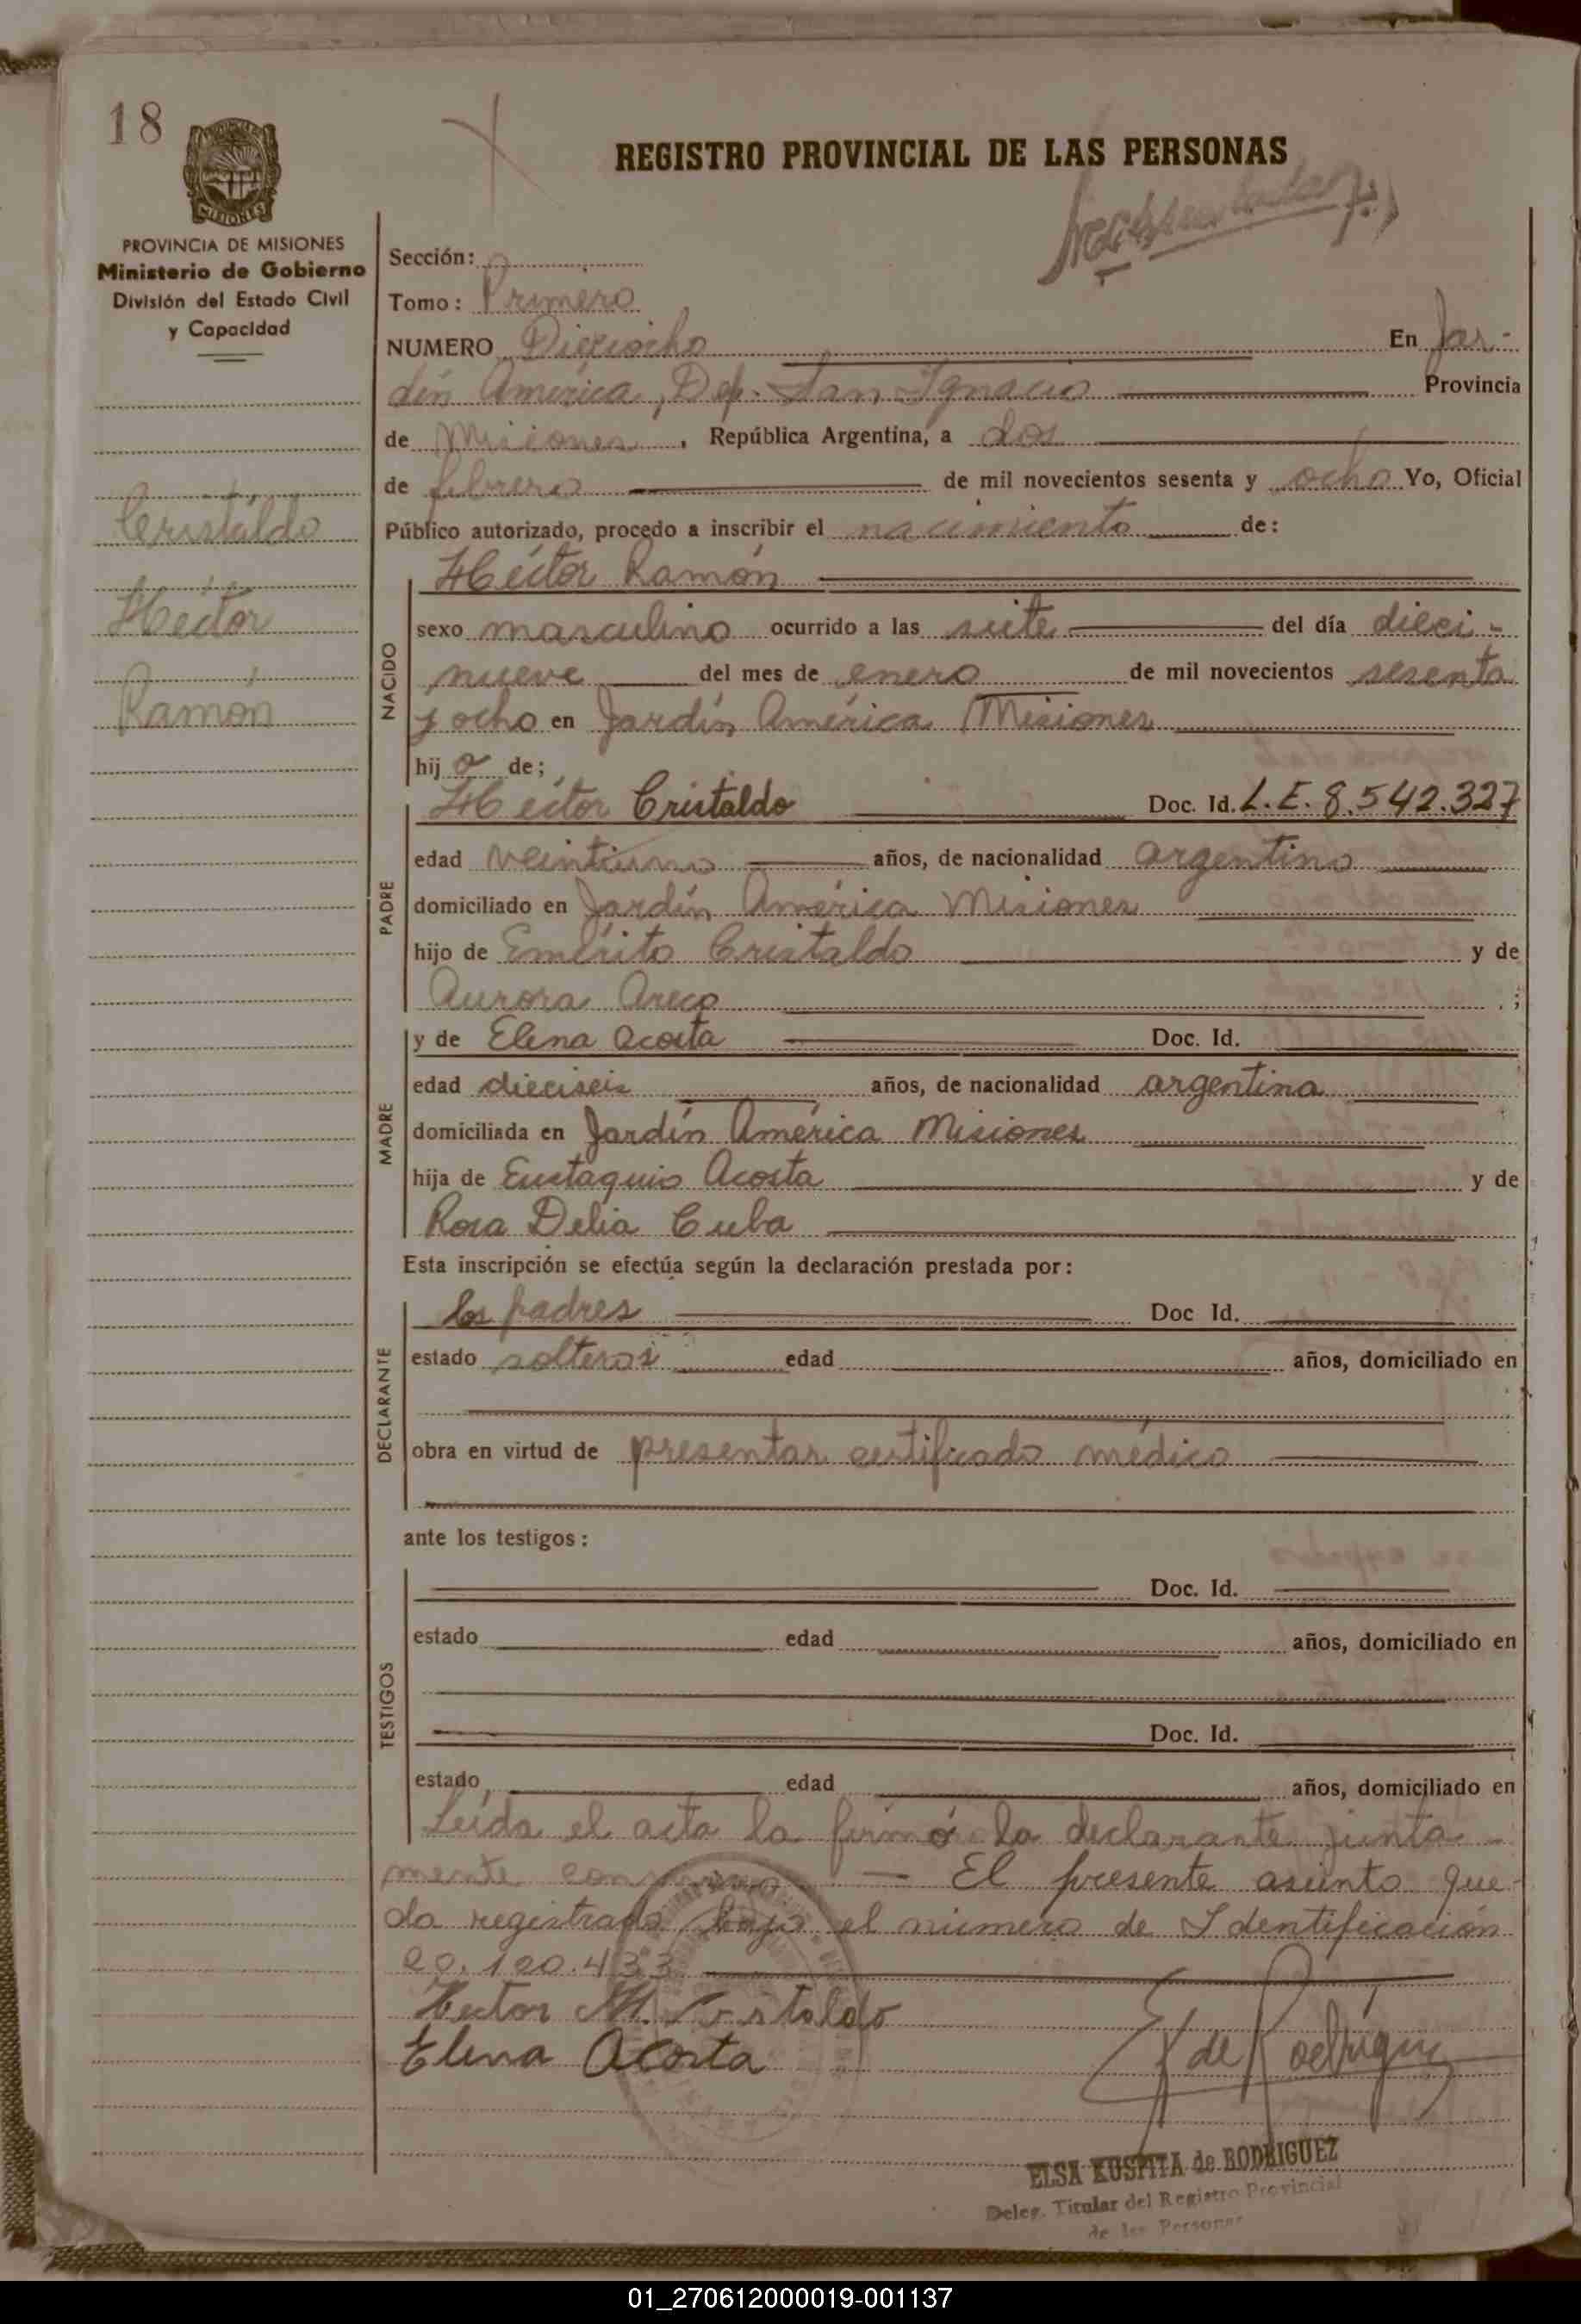 18
REGISTRO PROVINCIAL DE LAS PERSONAS
MISIONES
PROVINCIA DE MISIONES
Ministerio de Gobierno
División del Estado Civil
y Capacidad
Cristaldo
Héctor
Ramón
Sección:
Tomo: Primero
NUMERO Dieciocho En Jar-
dín América, Dep. San Ignacio Provincia
de Misiones, República Argentina, a dos
de febrero de mil novecientos sesenta y ocho Yo, Oficial
Público autorizado, procedo a inscribir el nacimiento de:
NACIDO
Héctor Ramón
sexo masculino ocurrido a las siete del día dieci-
nueve del mes de enero de mil novecientos sesenta
y ocho en Jardín América Misiones
hij o de;
PADRE
Héctor Cristaldo Doc. Id. L.E. 8.542.327
edad veintiuno años, de nacionalidad argentino
domiciliado en Jardín América Misiones
hijo de Emérito Cristaldo y de
Aurora Areco ;
MADRE
y de Elena Acosta Doc. Id.
edad dieciseis años, de nacionalidad argentina
domiciliada en Jardín América Misiones
hija de Eustaquio Acosta y de
Rosa Delia Cuba
Esta inscripción se efectúa según la declaración prestada por:
DECLARANTE
los padres Doc Id.
estado solteros edad años, domiciliado en
obra en virtud de presentar certificado médico
ante los testigos:
TESTIGOS
Doc. Id.
estado edad años, domiciliado en
Doc. Id.
estado edad años, domiciliado en
Leída el acta la firmó la declarante junta-
mente con — El presente asiento que-
da registrado bajo el número de Identificación
20.120.433
Hector M. Cristaldo
Elena Acosta
E K de Rodríguez
ELSA KUSPITA de RODRIGUEZ
Deleg. Titular del Registro Provincial
de las Personas
01_270612000019-001137